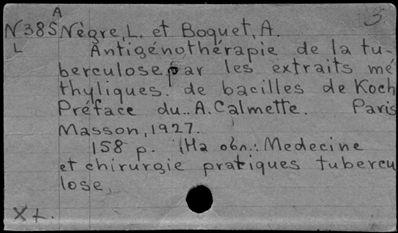 A 5
N38S Nègre, L. et Boquet, A.
L Antigénothérapie de la tu-
berculose par les extraits mé
thyliques. de bacilles de Koch
Préface du.. A. Calmette. Paris
Masson, 1927.
158 p. (На обл.: Medecine
et chirurgie pratiques tubercu
lose,
X L.